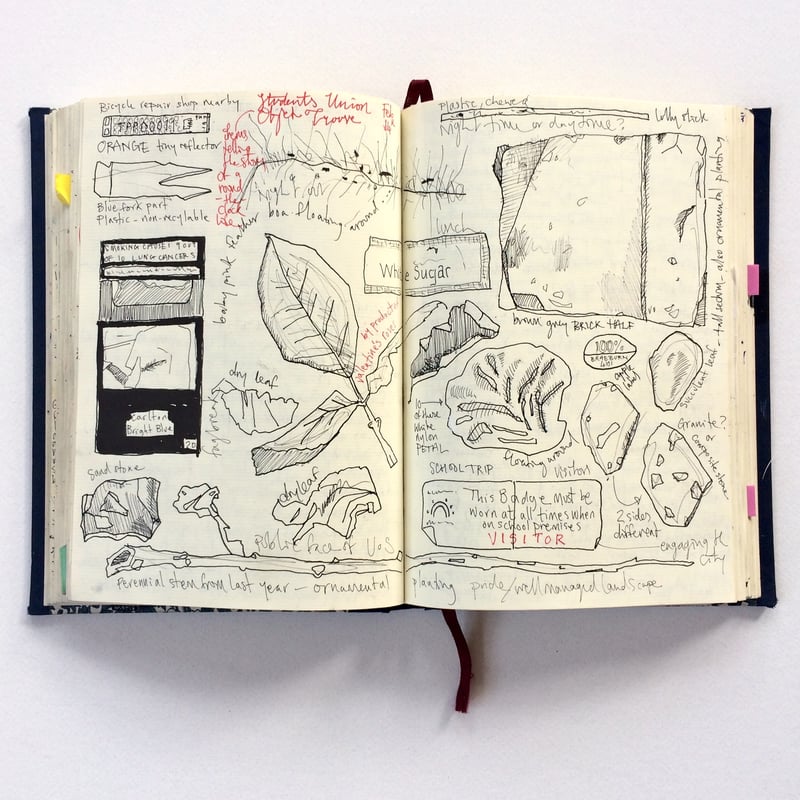 Bicycle repair shop nearby
ORANGE tiny reflector
Blue fork part
Plastic - non-recylable
SMOKING CAUSES 9 OUT
OF 10 LUNG CANCERS
carlton
Bright Blue
20
Students Union
of
items
telling
the story
of a
round
the
clock
night
boa floating around
baby pink feather
dry leaf
fag break
dry leaf
sand stone
public face of UoS
perennial stem from last year – ornamental planting pride/well managed landscape
plastic, chewed
lolly stick
night time or day time?
lunch
White Sugar
by product
valentine's rose
brown grey BRICK HALF
tall sedum - also ornamental planting
100%
BRAEBURN
apple
succulent leaf
10
of these
white
nylon
PETAL
floating around
Granite?
or
composite stone
2 sides
different
SCHOOL TRIP
visitors
This Badge must be
worn at all times when
on school premises
VISITOR
engaging the
city